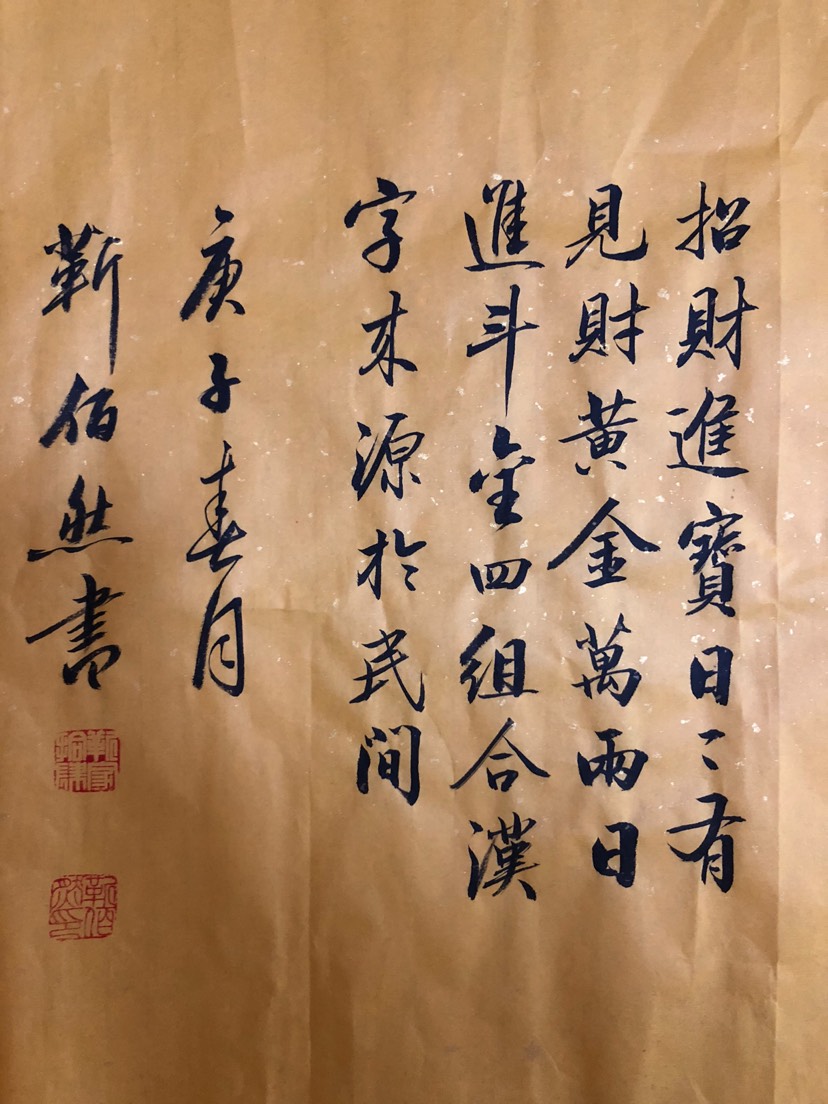 招財進寶日〻有
見財黃金萬兩日
進斗金四組合漢
字来源於民間
庚子春月
靳佰然書
靳佰然印